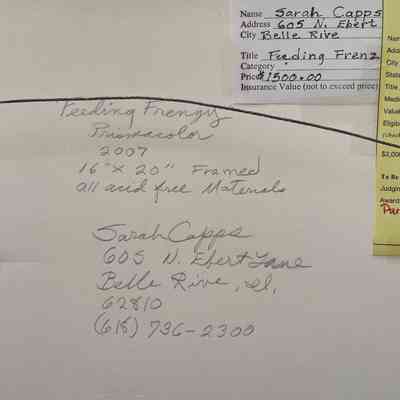 Name Sarah Capps
Address 605 N. Ebert
City Belle Rive
Title Feeding Frenz
Category
Price $1500.00
Insurance Value (not to exceed price)
Nam
Addr
City
State
Title
Medi
Value
Eligib
$3,000
To Be
Judgin
Award
Pur
Feeding Frenzy
Prismacolor
2007
16" X 20" Framed
all acid free Materials
Sarah Capps
605 N. Ebert Lane
Belle Rive, Il.
62810
(618) 736-2300